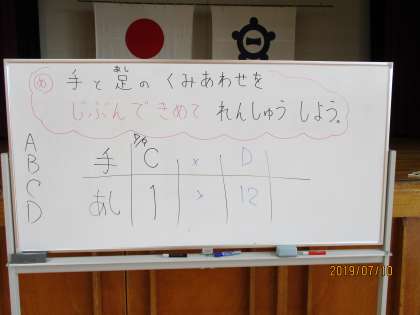 め 手と足のくみあわせを
あし
じぶんできめて れんしゅうしよう。
A
B
C
D
手 C × D
あし 1 > 12
2019/07/10